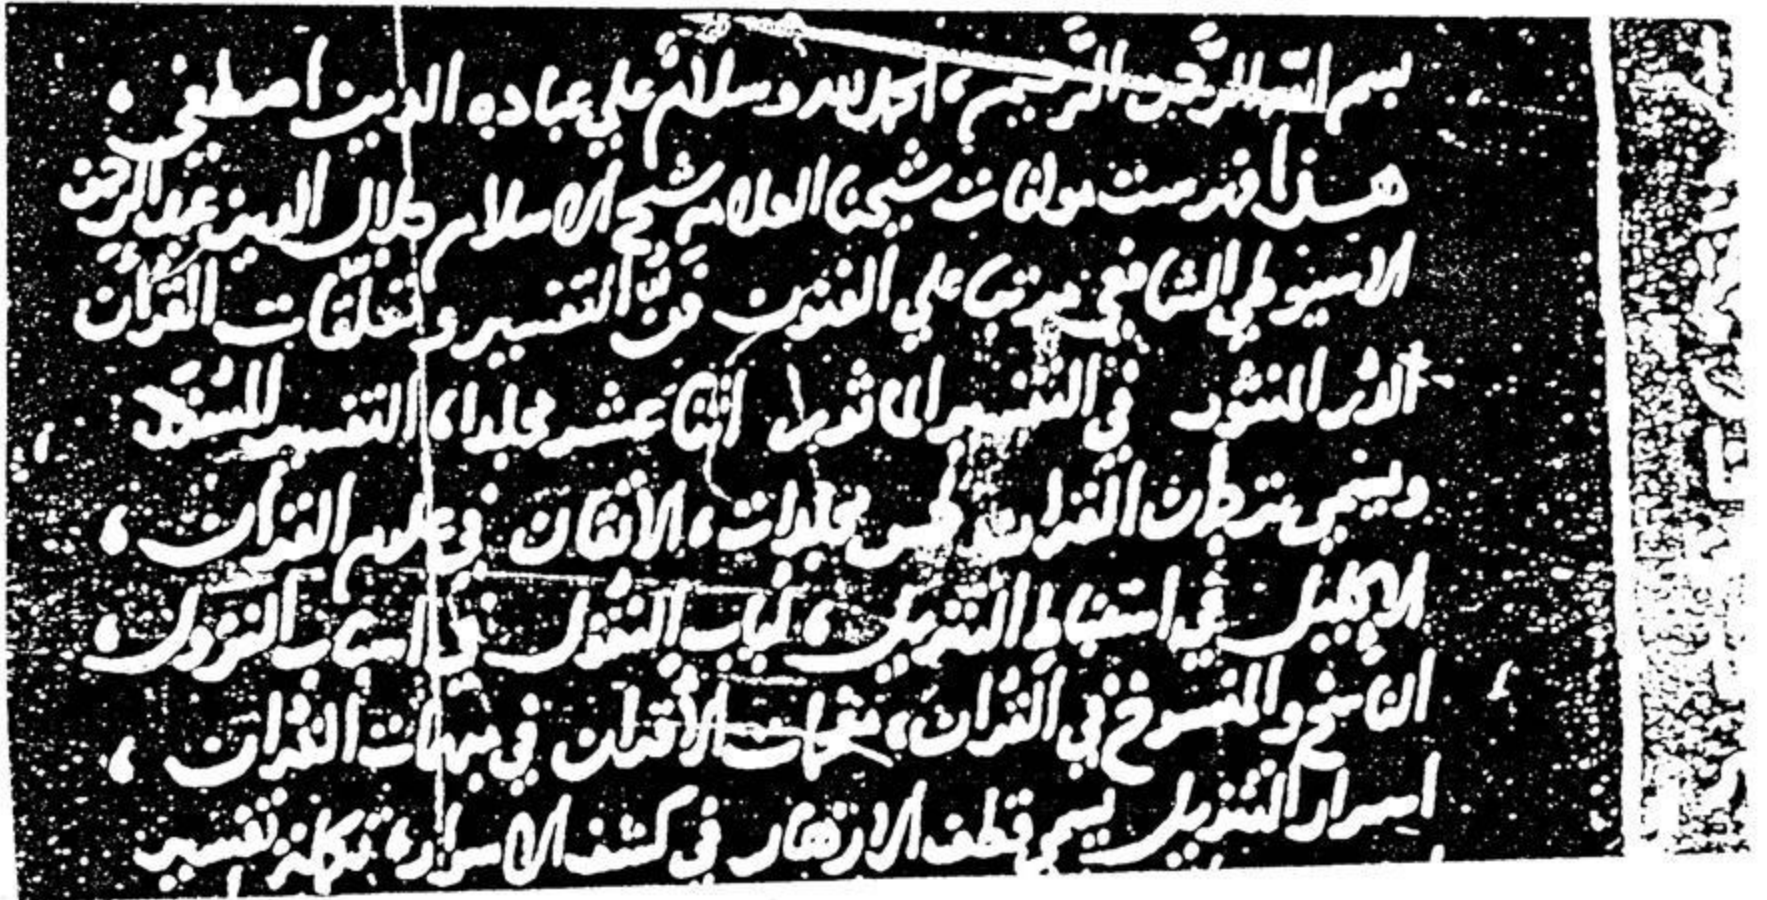 بسم الله الرحمن الرحيم، الحمد لله وسلام علي عباده الذين اصطفي،
هذا فهرست مولفات شيخنا العلامة شيخ الاسلام جلال الدين عبد الرحمن
الاسيوطي الشافعي مرتبا علي الفنون فن التفسير وتعلقات القرآن
الدر المنثور في التفسير الماثور اثنا عشر مجلدا، التفسير المسند
ويسمي ترجمان القرآن خمس مجلدات، الاتقان في علوم القرآن،
الاكليل في استنباط التنزيل، لباب النقول في اسباب النزول،
الناسخ والمنسوخ في القرآن، مفحمات الأقران في مبهمات القرآن،
اسرار التنزيل يسمي قطف الازهار في كشف الاسرار، تكملة تفسير